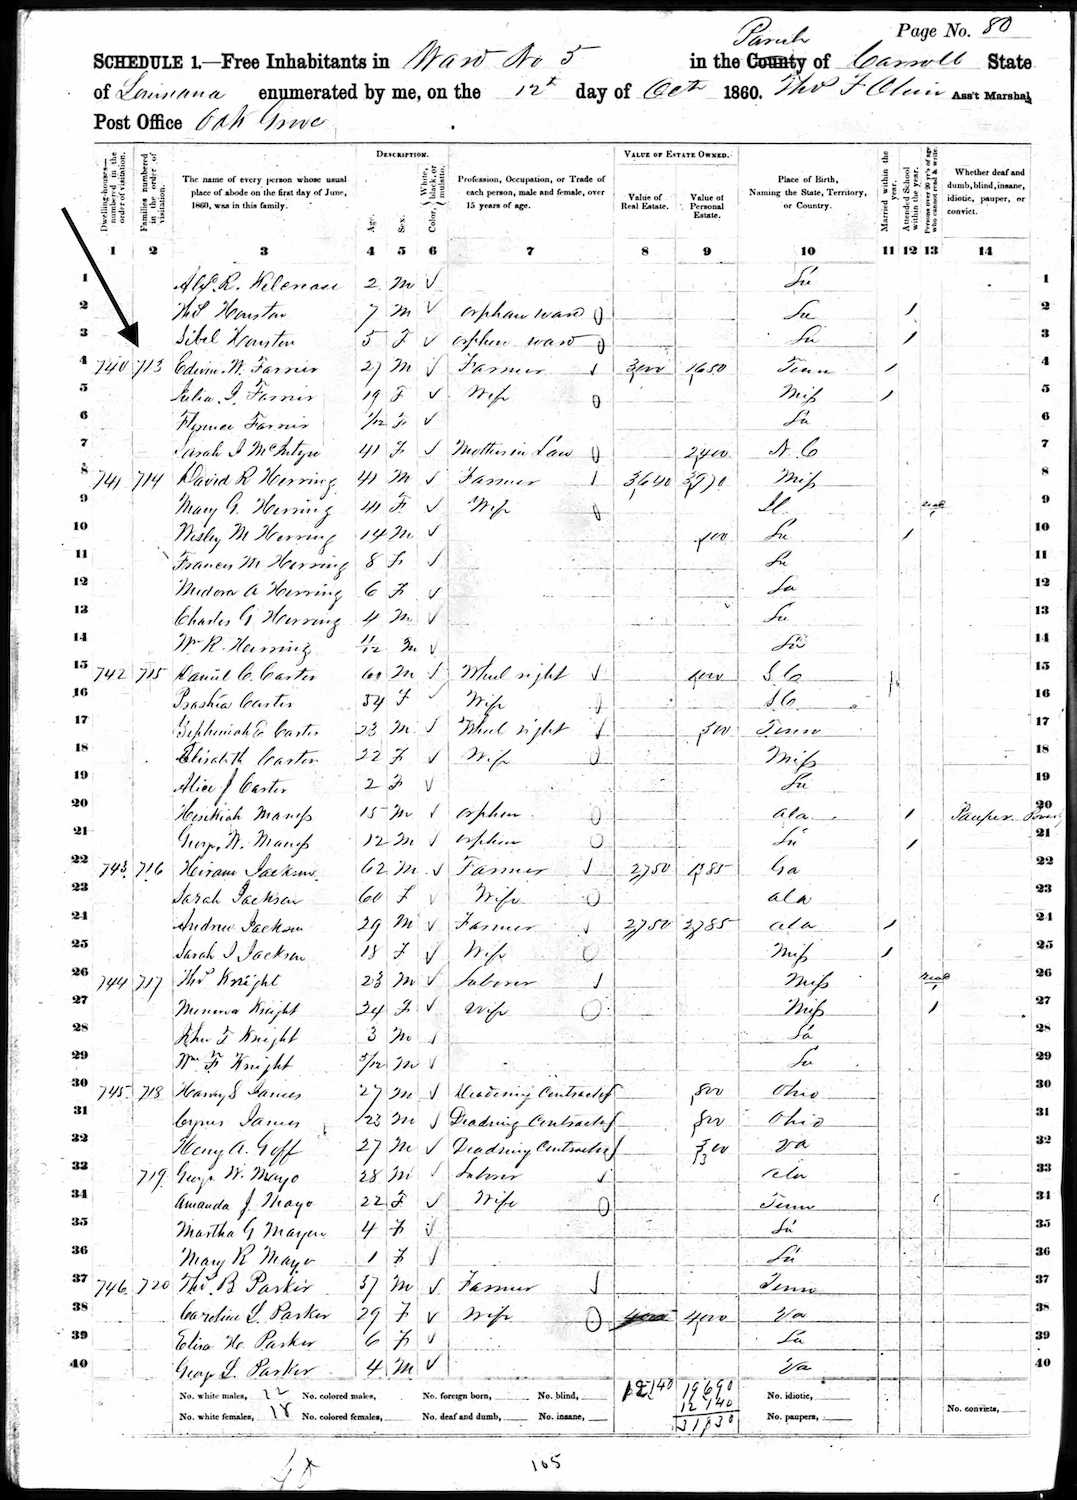 Page No. 80
SCHEDULE 1.—Free Inhabitants in Ward No 5 in the County Parish of Carroll State
of Louisiana enumerated by me, on the 12t day of Oct 1860. Thos F Ass't Marshal
Post Office Oak Grove
DESCRIPTION. VALUE OF ESTATE OWNED.
Dwelling-houses—numbered in the order of visitation. Families numbered in the order of visitation. The name of every person whose usual place of abode on the first day of June, 1860, was in this family. Age. Sex. Color, White, black, or mulatto. Profession, Occupation, or Trade of each person, male and female, over 15 years of age. Value of Real Estate. Value of Personal Estate. Place of Birth, Naming the State, Territory, or Country. Married within the year. Attended School within the year. Persons over 20 y'rs of age who cannot read & write. Whether deaf and dumb, blind, insane, idiotic, pauper, or convict.
1 2 3 4 5 6 7 8 9 10 11 12 13 14
1 R. 2 M La 1
2 Thos Houston 7 M orphan ward La 2
3 Sibel Houston 5 F orphan ward La 3
4 740 713 Edwin W. Farrier 27 M Farmer 3,000 1650 Tenn 4
5 Julia J. Farrier 19 F Wife Miss 5
6 Florence Farrier 1/12 F La 6
7 Sarah J McIntyre 41 F Mother in Law 2,400 N. C 7
8 741 714 David R Herring 41 M Farmer 3,640 Miss 8
9 Mary G. Herring 41 F Wife Il read 9
10 Wesley M Herring 14 M La 10
11 Frances M Herring 8 F La 11
12 Medora A Herring 6 F La 12
13 Charles G Herring 4 M La 13
14 Wm R. Herring 11/12 M La 14
15 742 715 Daniel C. Carter 60 M Wheel right S. C 15
16 Carter 54 F Wife S. C. 16
17 Zepheniah E Carter 23 M Wheel right 500 Tenn 17
18 Elisabeth Carter 22 F Wife Miss 18
19 Alice J Carter 2 F La 19
20 Hesikiah Maness 15 M orphen ala Pauper 20
21 George W. Maness 12 M orphen La 21
22 743 716 Hiram Jackson 62 M Farmer 2,750 Ga 22
23 Sarah Jackson 60 F Wife ala 23
24 Andrew Jackson 29 M Farmer 2,750 2,785 ala 24
25 Sarah J Jackson 18 F Wife Miss 25
26 744 717 Thos Knight 23 M Laborer Miss read 26
27 Minerva Knight 24 F Wife Miss 27
28 F Knight 3 M La 28
29 Wm F Knight 3/12 M La 29
30 745 718 Harvey S James 27 M Deadning Contractor 800 Ohio 30
31 Cyrus James 23 M Deadning Contractor 800 Ohio 31
32 Henry A. Goff 27 M Deadning Contractor Va 32
33 719 George W. Mayo 28 M Laborer ala 33
34 Amanda J. Mayo 22 F Wife Tenn 34
35 Martha G 4 F La 35
36 Mary R Mayo 1 F La 36
37 746 720 Thos B Parker 37 M Farmer Tenn 37
38 Caroline L. Parker 29 F Wife 4000 4,000 Va 38
39 Eliza H. Parker 6 F La 39
40 George L. Parker 4 M Va 40
No. white males, 22 No. colored males, No. foreign born, No. blind, 12140 19690 No. idiotic,
12140
No. white females, 18 No. colored females, No. deaf and dumb, No. insane, No. paupers, No. convicts,
165